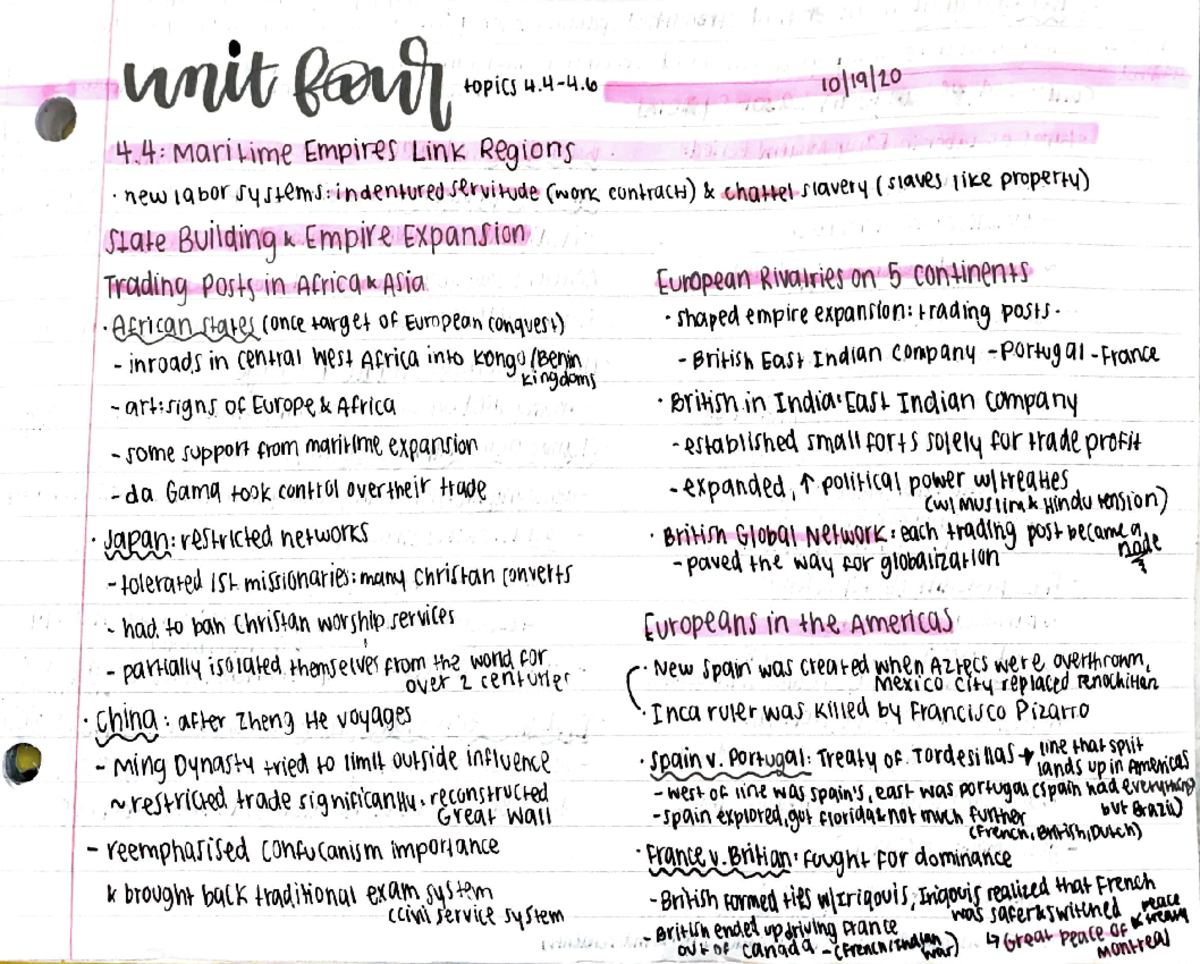 unit four topics 4.4-4.6 10/19/20
4.4: Maritime Empires Link Regions
· new labor systems: indentured servitude (work contracts) & chattel slavery (slaves like property)
State Building & Empire Expansion
Trading Posts in Africa & Asia
· African states (once target of European conquest)
- inroads in central West Africa into Kongo/Benin
kingdoms
- art: signs of Europe & Africa
- some support from maritime expansion
- da Gama took control over their trade
· Japan: restricted networks
- tolerated 1st missionaries: many Christan converts
- had to ban Christan worship services
- partially isolated themselves from the world for
over 2 centuries
· China: after Zheng He voyages
- Ming Dynasty tried to limit outside influence
~ restricted trade significantly: reconstructed
Great Wall
- reemphasised confucanism importance
& brought back traditional exam system
(civil service system
European Rivalries on 5 continents
· shaped empire expansion: trading posts·
- British East Indian Company - Portugal - France
· British in India: East Indian Company
- established small forts solely for trade profit
- expanded, ↑ political power w/ treaties
(w/ Muslim & Hindu tension)
· British Global Network: each trading post became a
node
- paved the way for globalization
Europeans in the Americas
· New Spain was created when Aztecs were overthrown,
Mexico City replaced Tenochitlan
· Inca ruler was killed by Francisco Pizarro
· Spain v. Portugal: Treaty of Tordesillas → line that split
lands up in Americas
- west of line was Spain's, east was Portugal (Spain had everything
but Brazil)
- Spain explored, got Florida & not much further
(French, British, Dutch)
· France v. Britian: fought for dominance
- British formed ties w/ Iriqouis, Iriqouis realized that French
was safer & switched peace
& treaty
↳ Great Peace of
Montreal
- British ended up driving France
out of Canada - (French/Indian
war)